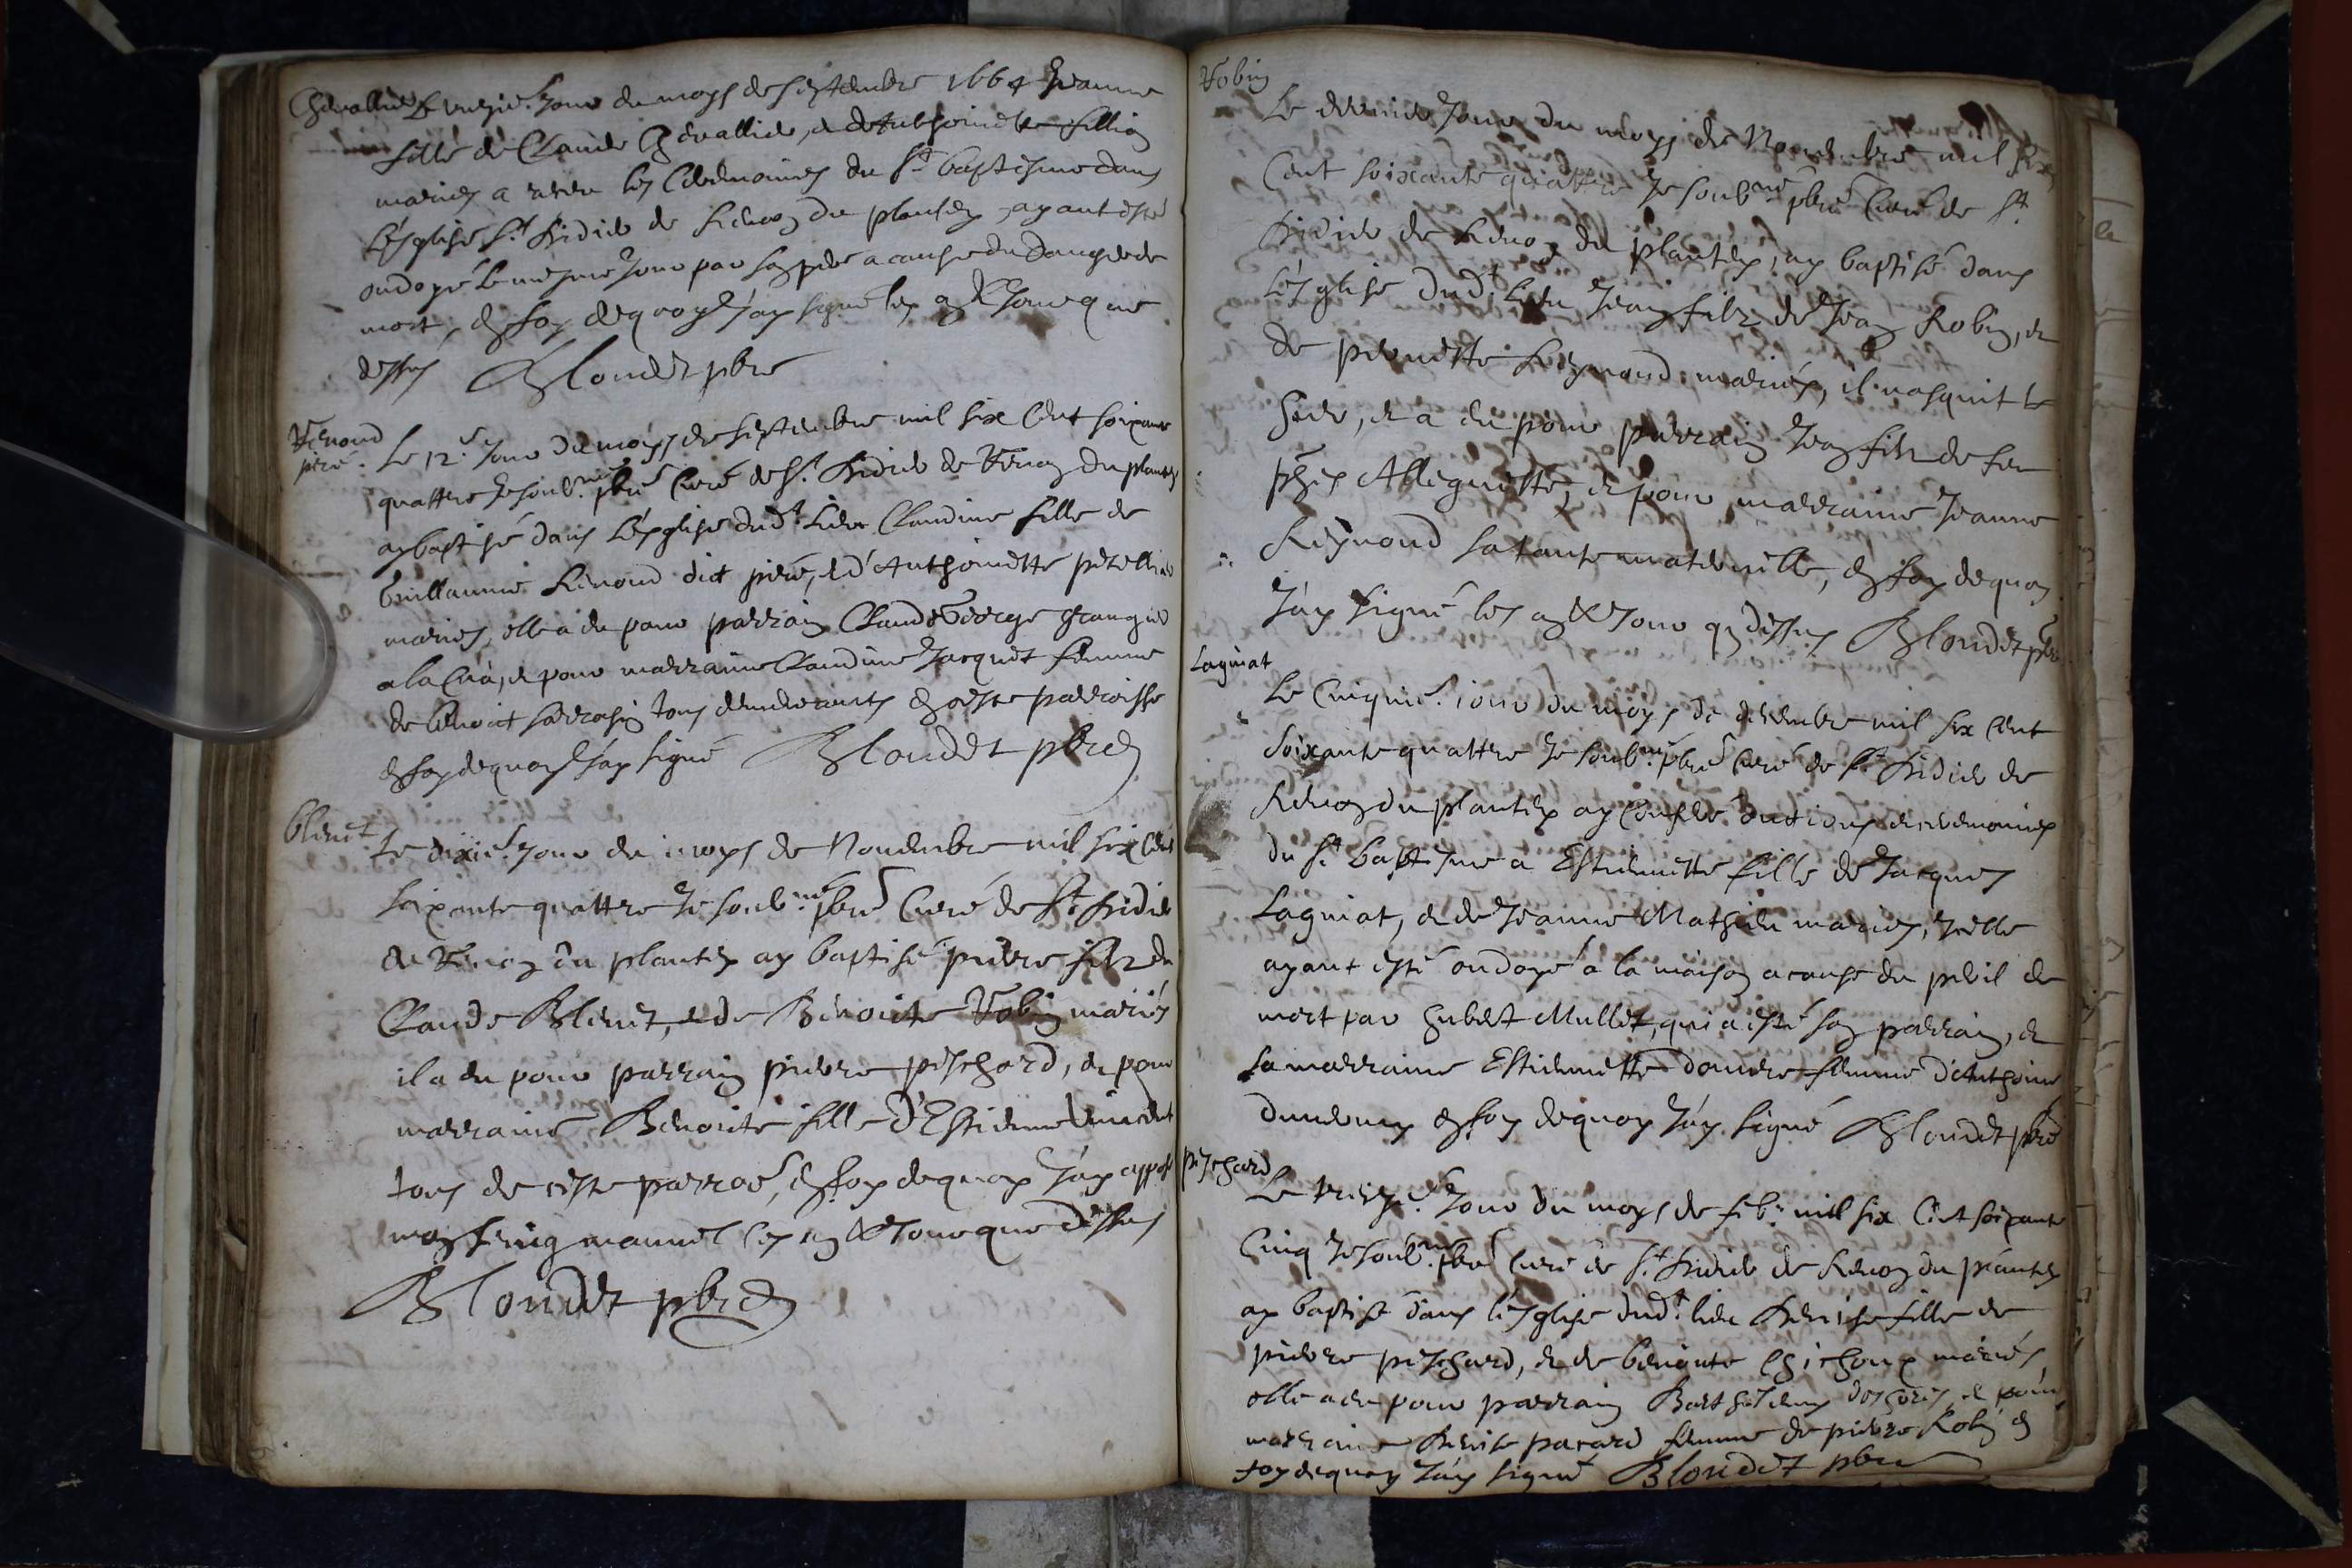 Chevallier Le unzie. Jour du moys de septembre 1664 Jeanne
fille de Claude Chevallier, et d'Anthoinette Fillion
mariés a receu les Ceremonies du St baptesme dans
L'esglise St Didier de Renon du plantey, ayant esté
ondoyé le mesme Jour par son pere a cause du danger de
mort, en foy de quoy J'ay signé les an et Jour que
dessus Blondet pbre
Renoud
piré. Le 12e Jour du moys de septembre mil six Cent soixante
quattre Je soubné pbre Curé de St Didier de Renon du plantey
ay baptisé dans L'esglise dudt Lieu Claudine fille de
Guillaume Renoud dict piré, et d'Anthoinette
mariés, elle a eu pour parrain Claude George granger
a la Cua, et pour marraine Claudine Jacquet femme
de Benoict Sarrasin tous demeurants en ceste parroisse
en foy de quoy J'ay signé Blondet pbre
Blenet Le dixie. Jour du moys de Novembre mil six Cent
soixante quattre Je soubné pbre Curé de St Didier
de Renon du plantey ay baptisé pierre filz de
Claude Blenet, et de Benoite Robin mariés
il a eu pour parrain pierre pischard, et pour
marraine Benoite fille d'Estienne Vincent
tous de ceste parroe, en foy de quoy J'ay apposé
mon seing manuel les an et Jour que dessus
Blondet pbre
Robin
Le dernier Jour du moys de Novembre mil six
Cent soixante quattre Je soubné pbre Curé de St
Didier de Renon du plantey, ay baptisé dans
L'esglise dudt Lieu Jean filz de Jean Robin, et
de pernette Reynoud mariés, il nasquit le
hier, et a eu pour parrain Jean filz de feu
Alleguette, et pour marraine Jeanne
Reynoud sa tante maternelle, en foy de quoy
J'ay signé les an et Jour que dessus Blondet pbre
Lagniat
Le Cinquie. iour du moys de decembre mil six Cent
soixante quattre Je soubné pbre Curé de St Didier de
Renon du plantey ay Conferé onctions et ceremonies
du St baptesme a Estiennette fille de Jacques
Lagniat, et de Jeanne Mathieu mariés, Icelle
ayant esté ondoyé a la maison a cause du peril de
mort par hubert Mullet, qui a esté son parrain, et
sa marraine Estiennette femme d'Anthoine
en foy de quoy J'ay signé Blondet pbre
pischard
Le treize. Jour du moys de febr. mil six Cent soixante
Cinq Je soubné pbre Curé de St Didier de Renon du plantey
ay baptisé dans l'esglise dudt lieu Denise fille de
pierre pischard, et de benoite Chichoux mariés,
elle a eu pour parrain Barthelemy et pour
marraine Denise pacard femme de pierre Robin en
foy de quoy J'ay signé Blondet pbre